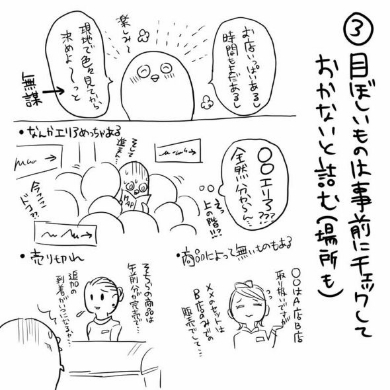 ③目ぼしいものは事前にチェックして
おかないと詰む(場所も)
お店いっぱいあるし
時間もまだあるし
楽しみ〜
現地で色々見てから
決めよ〜っと
無謀
・なんかエリアめっちゃある
〇〇エリア???
全然分からん…
えっ
上の階!?
そして
進まん…
今ココ
ドコ?!
・商品によって無いものもある
〇〇はA店B店
取り扱いですが
×××セットは
B店のみでの
販売でして…
・売り切れ
そちらの商品は
午前分が完売で…
追加の